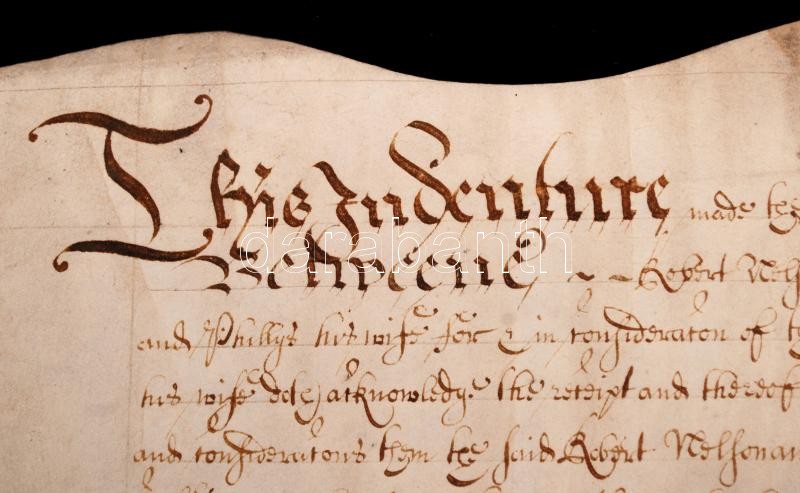 Thys Indenture made the
Betweene ~ ~ Robert Nels
darabanth
and Phillys his wife for & in consideraton of t
his wife doth acknowledge the receipt and thereof
and consideratons them the said Robert Nelson an